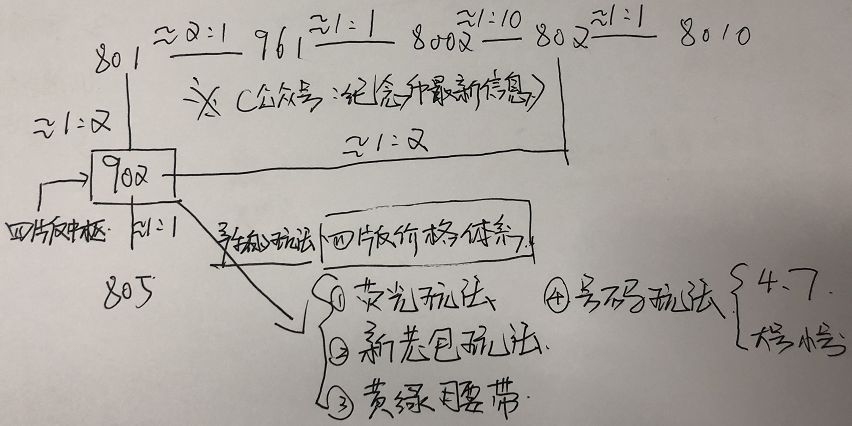 801 ≈2:1 961 ≈1:1 8002 ≈1:10 802 ≈1:1 8010
※ (公众号:纪念册最新信息)
≈1:2
≈1:2
902
四版中枢 ≈1:1
玩法 四版价格体系
805
①荧光玩法 ④号码玩法 4、7.
②新老包玩法. 大号小号
③黄绿腰带.